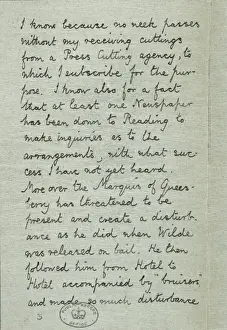 I know because no week passes
without my receiving cuttings
from a Press Cutting agency, to
which I subscribe for the pur-
pose. I know also for a fact
that at least one Newspaper
has been down to Reading to
make inquiries as to the
arrangements, with what suc-
cess I have not yet heard.
More over the Marquis of Queens-
berry has threatened to be
present and create a disturb-
ance as he did when Wilde
was released on bail. He then
followed him from Hotel to
Hotel accompanied by "bruisers"
and made so much disturbance
5